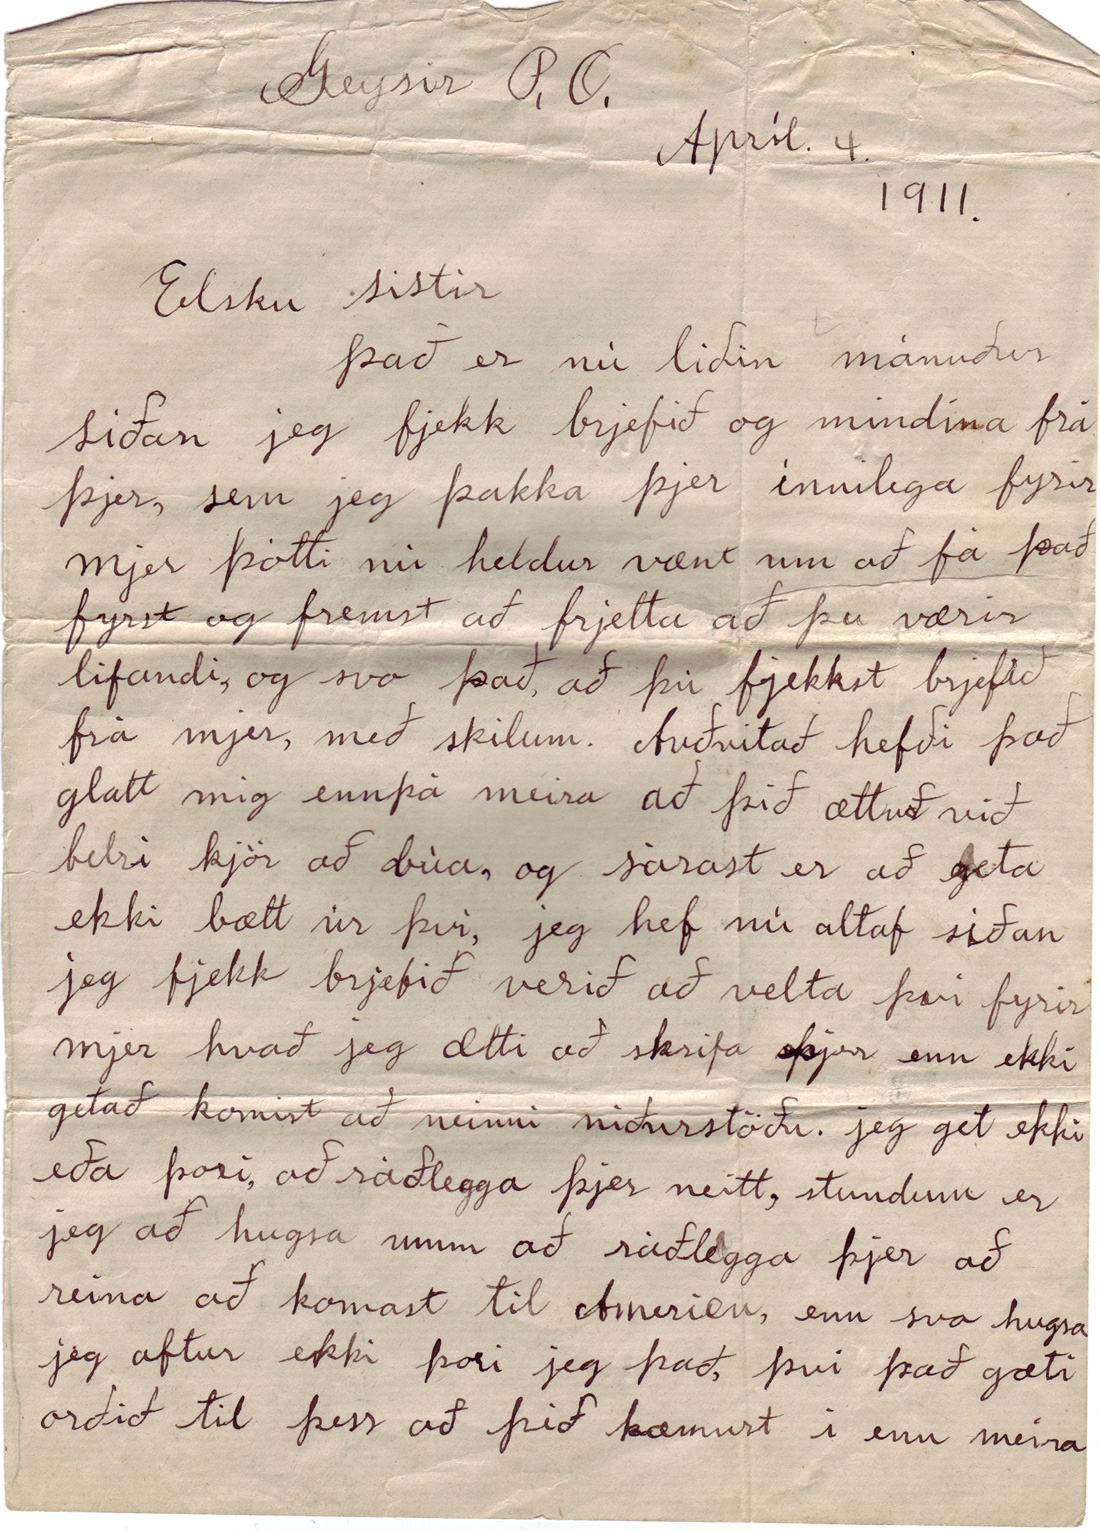 Geysir P.O.
Apríl. 4.
1911.
Elsku sistir
það er nú liðin mánuður
siðan jeg fjekk brjefið og mindina frá
þjer, sem jeg þakka þjer innilega fyrir
mjer þótti nú heldur vænt um að fá það
fyrst og fremst að frjetta að þu værir
lifandi, og svo það, að þú fjekkst brjefið
frá mjer, með skilum. Auðvitað hefði það
glatt mig ennþá meira að þið ættuð við
betri kjör að búa, og sárast er að geta
ekki bætt úr því, jeg hef nú altaf siðan
jeg fjekk brjefið verið að velta þvi fyrir
mjer hvað jeg ætti að skrifa þjer enn ekki
getað komist að neinni niðurstöðu. jeg get ekki
eða þori, að ráðlegga þjer neitt, stundum er
jeg að hugsa umm að ráðlegga þjer að
reina að komast til Ameriku, enn svo hugsa
jeg aftur ekki þori jeg það, þvi það gæti
orðið til þess að þið kæmust i enn meira